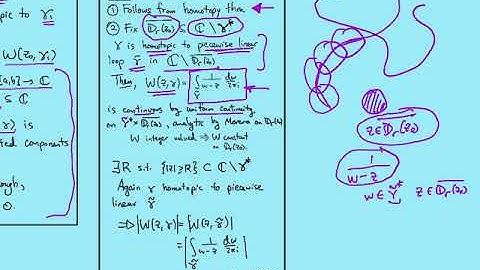 pic to γ₁
W(z₀, γ₁)
[a,b] → ℂ
⊆ ℂ
γ) is
ted components
ough,
0.
① Follows from homotopy thm
② Fix D̅ᵣ(z₀) ⊆ ℂ \ γ*
γ is homotopic to piecewise linear
loop γ̃ in ℂ \ D̅ᵣ(z₀)
Then, W(z,γ) = ∫_γ̃ 1/(w-z) dw/2πi
is continuous by uniform continuity
on γ̃* × D̅ᵣ(z₀), analytic by Morera on Dᵣ(z₀)
W integer valued ⇒ W constant
on Dᵣ(z₀)
∃R s.t. {|z|≥R} ⊂ ℂ \ γ*
Again γ homotopic to piecewise
linear γ̃
⇒ |W(z,γ)| = |W(z,γ̃)|
= |∫_γ̃ 1/(w-z) dw/2πi|
z∈D̅ᵣ(z₀)
1/(w-z)
w∈γ̃* z∈D̅ᵣ(z₀)